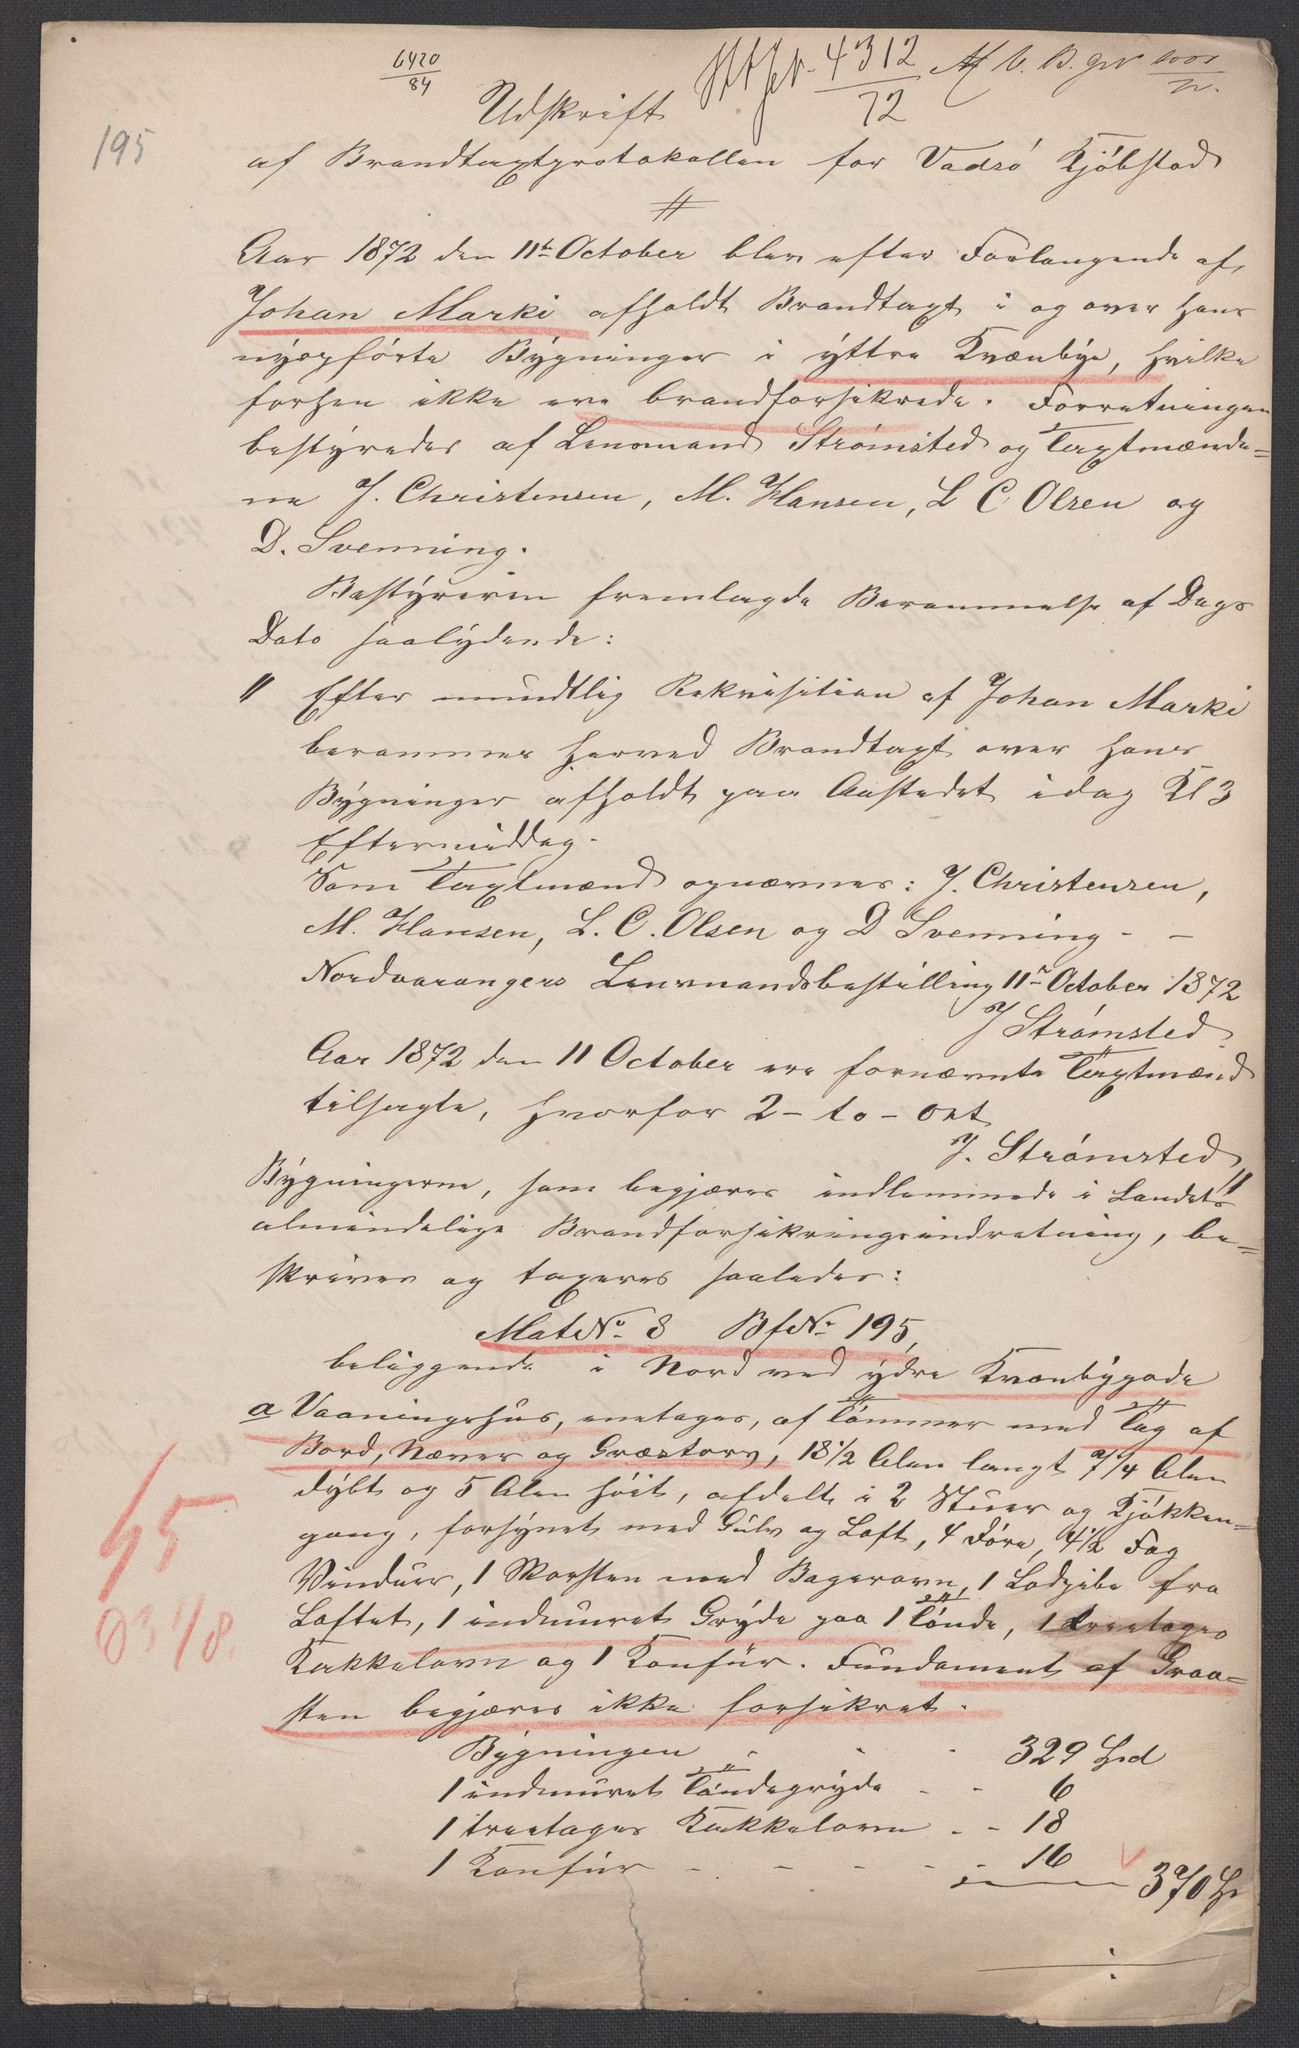 6420
84
4312
72
195
Udskrift
af Brandtaxtprotokollen for Vadsö Kjöbstad
Aar 1872 den 11te October blev efter Forlangende af
Johan Marki afholdt Brandtaxt i og over hans
nyopförte Bygninger i yttre Kvænbye, hvilke
forhen ikke ere brandforsikrede. Forretningen
bestyredes af Lensmand Strömsted og Taxtmænde=
ne J. Christensen, M. Hansen, L C Olsen og
D. Svenning.
Bestyreren fremlagde Berammelse af Dags
Dato saalydende:
" Efter mundtlig Rekvisition af Johan Marki
berammes herved Brandtaxt over hans
Bygninger afholdt paa Aastedet idag Kl 3
Eftermiddag.
Som Taxtmænd opnævnes: J. Christensen,
M. Hansen, L. C. Olsen og D Svenning - -
Nordvarangers Lensmandsbestilling 11te October 1872
J Strömsted
Aar 1872 den 11 October ere fornævnte Taxtmænd
tilsagte, hvorfor 2 - to - Ort
J. Strömsted"
Bygningerne, som begjæres indlemmede i Landets
almindelige Brandforsikringsindretning, be=
skrives og taxeres saaledes:
Mat No. 8 Bf No. 195,
beliggende i Nord ved ydre Kvænbygade
a Vaaningshus, enetages, af Tömmer med Tag af
Bord, Næver og Græstorv, 18 1/2 Alen langt 7 1/4 Alen
dybt og 5 Alen höit, afdelt i 2 Stuer og Kjökken=
gang, forsynet med Gulv og Loft, 4 Döre, 4 1/2 Fag
Vinduer, 1 Skorsten med Bagerovn, 1 Lodpibe fra
Loftet, 1 indmuret Gryde paa 1 Tönde, 1 treetages
Kakkelovn og 1 Komfür. Fundament af Graa=
sten begjæres ikke forsikret.
Bygningen - - - 329 Spd
1 indmuret Töndegryde - - 6
1 treetages Kakkelovn - - 18
1 Komfür - - - - - 16
370 Sp